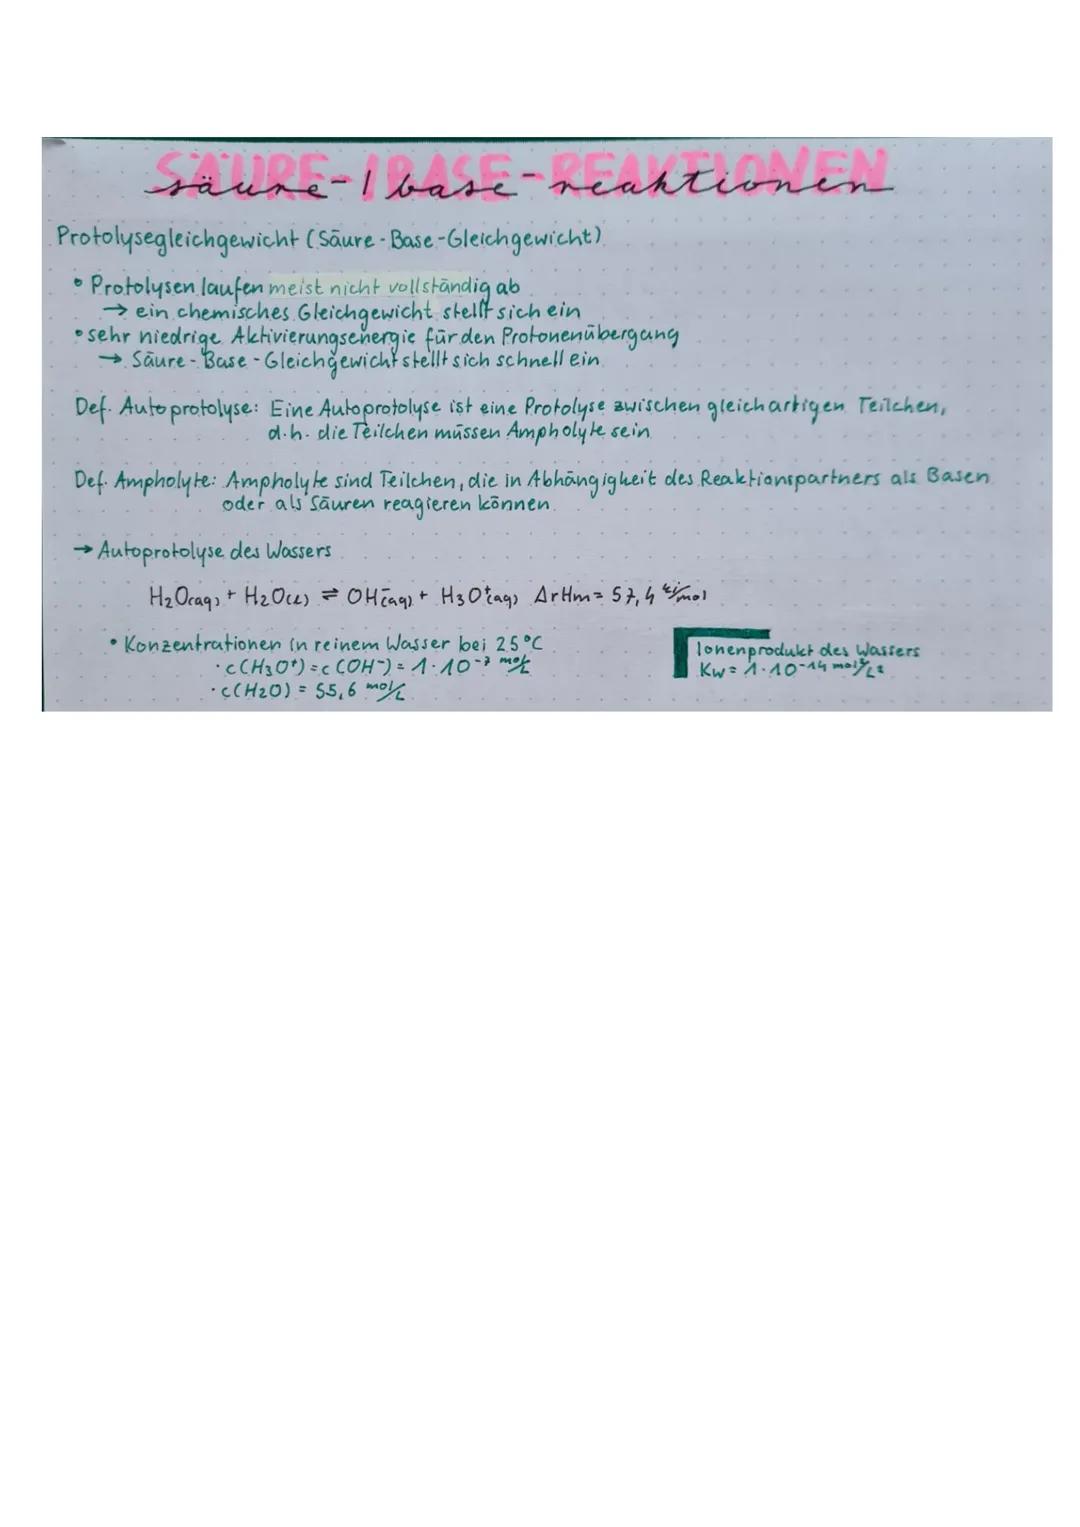 SÄURE-/BASE-REAKTIONEN
säure-/base-reaktionen
Protolysegleichgewicht (Säure-Base-Gleichgewicht)
• Protolysen laufen meist nicht vollständig ab
→ ein chemisches Gleichgewicht stellt sich ein
• sehr niedrige Aktivierungsenergie für den Protonenübergang
→ Säure-Base-Gleichgewicht stellt sich schnell ein
Def. Autoprotolyse: Eine Autoprotolyse ist eine Protolyse zwischen gleichartigen Teilchen,
d.h. die Teilchen müssen Ampholyte sein
Def. Ampholyte: Ampholyte sind Teilchen, die in Abhängigkeit des Reaktionspartners als Basen
oder als Säuren reagieren können
→ Autoprotolyse des Wassers
H₂O(aq) + H₂O(l) ⇌ OH⁻(aq) + H₃O⁺(aq) ΔrHm = 57,4 kJ/mol
• Konzentrationen in reinem Wasser bei 25°C
· c(H₃O⁺) = c(OH⁻) = 1·10⁻⁷ mol/L
· c(H₂O) = 55,6 mol/L
Ionenprodukt des Wassers
Kw = 1·10⁻¹⁴ mol²/L²